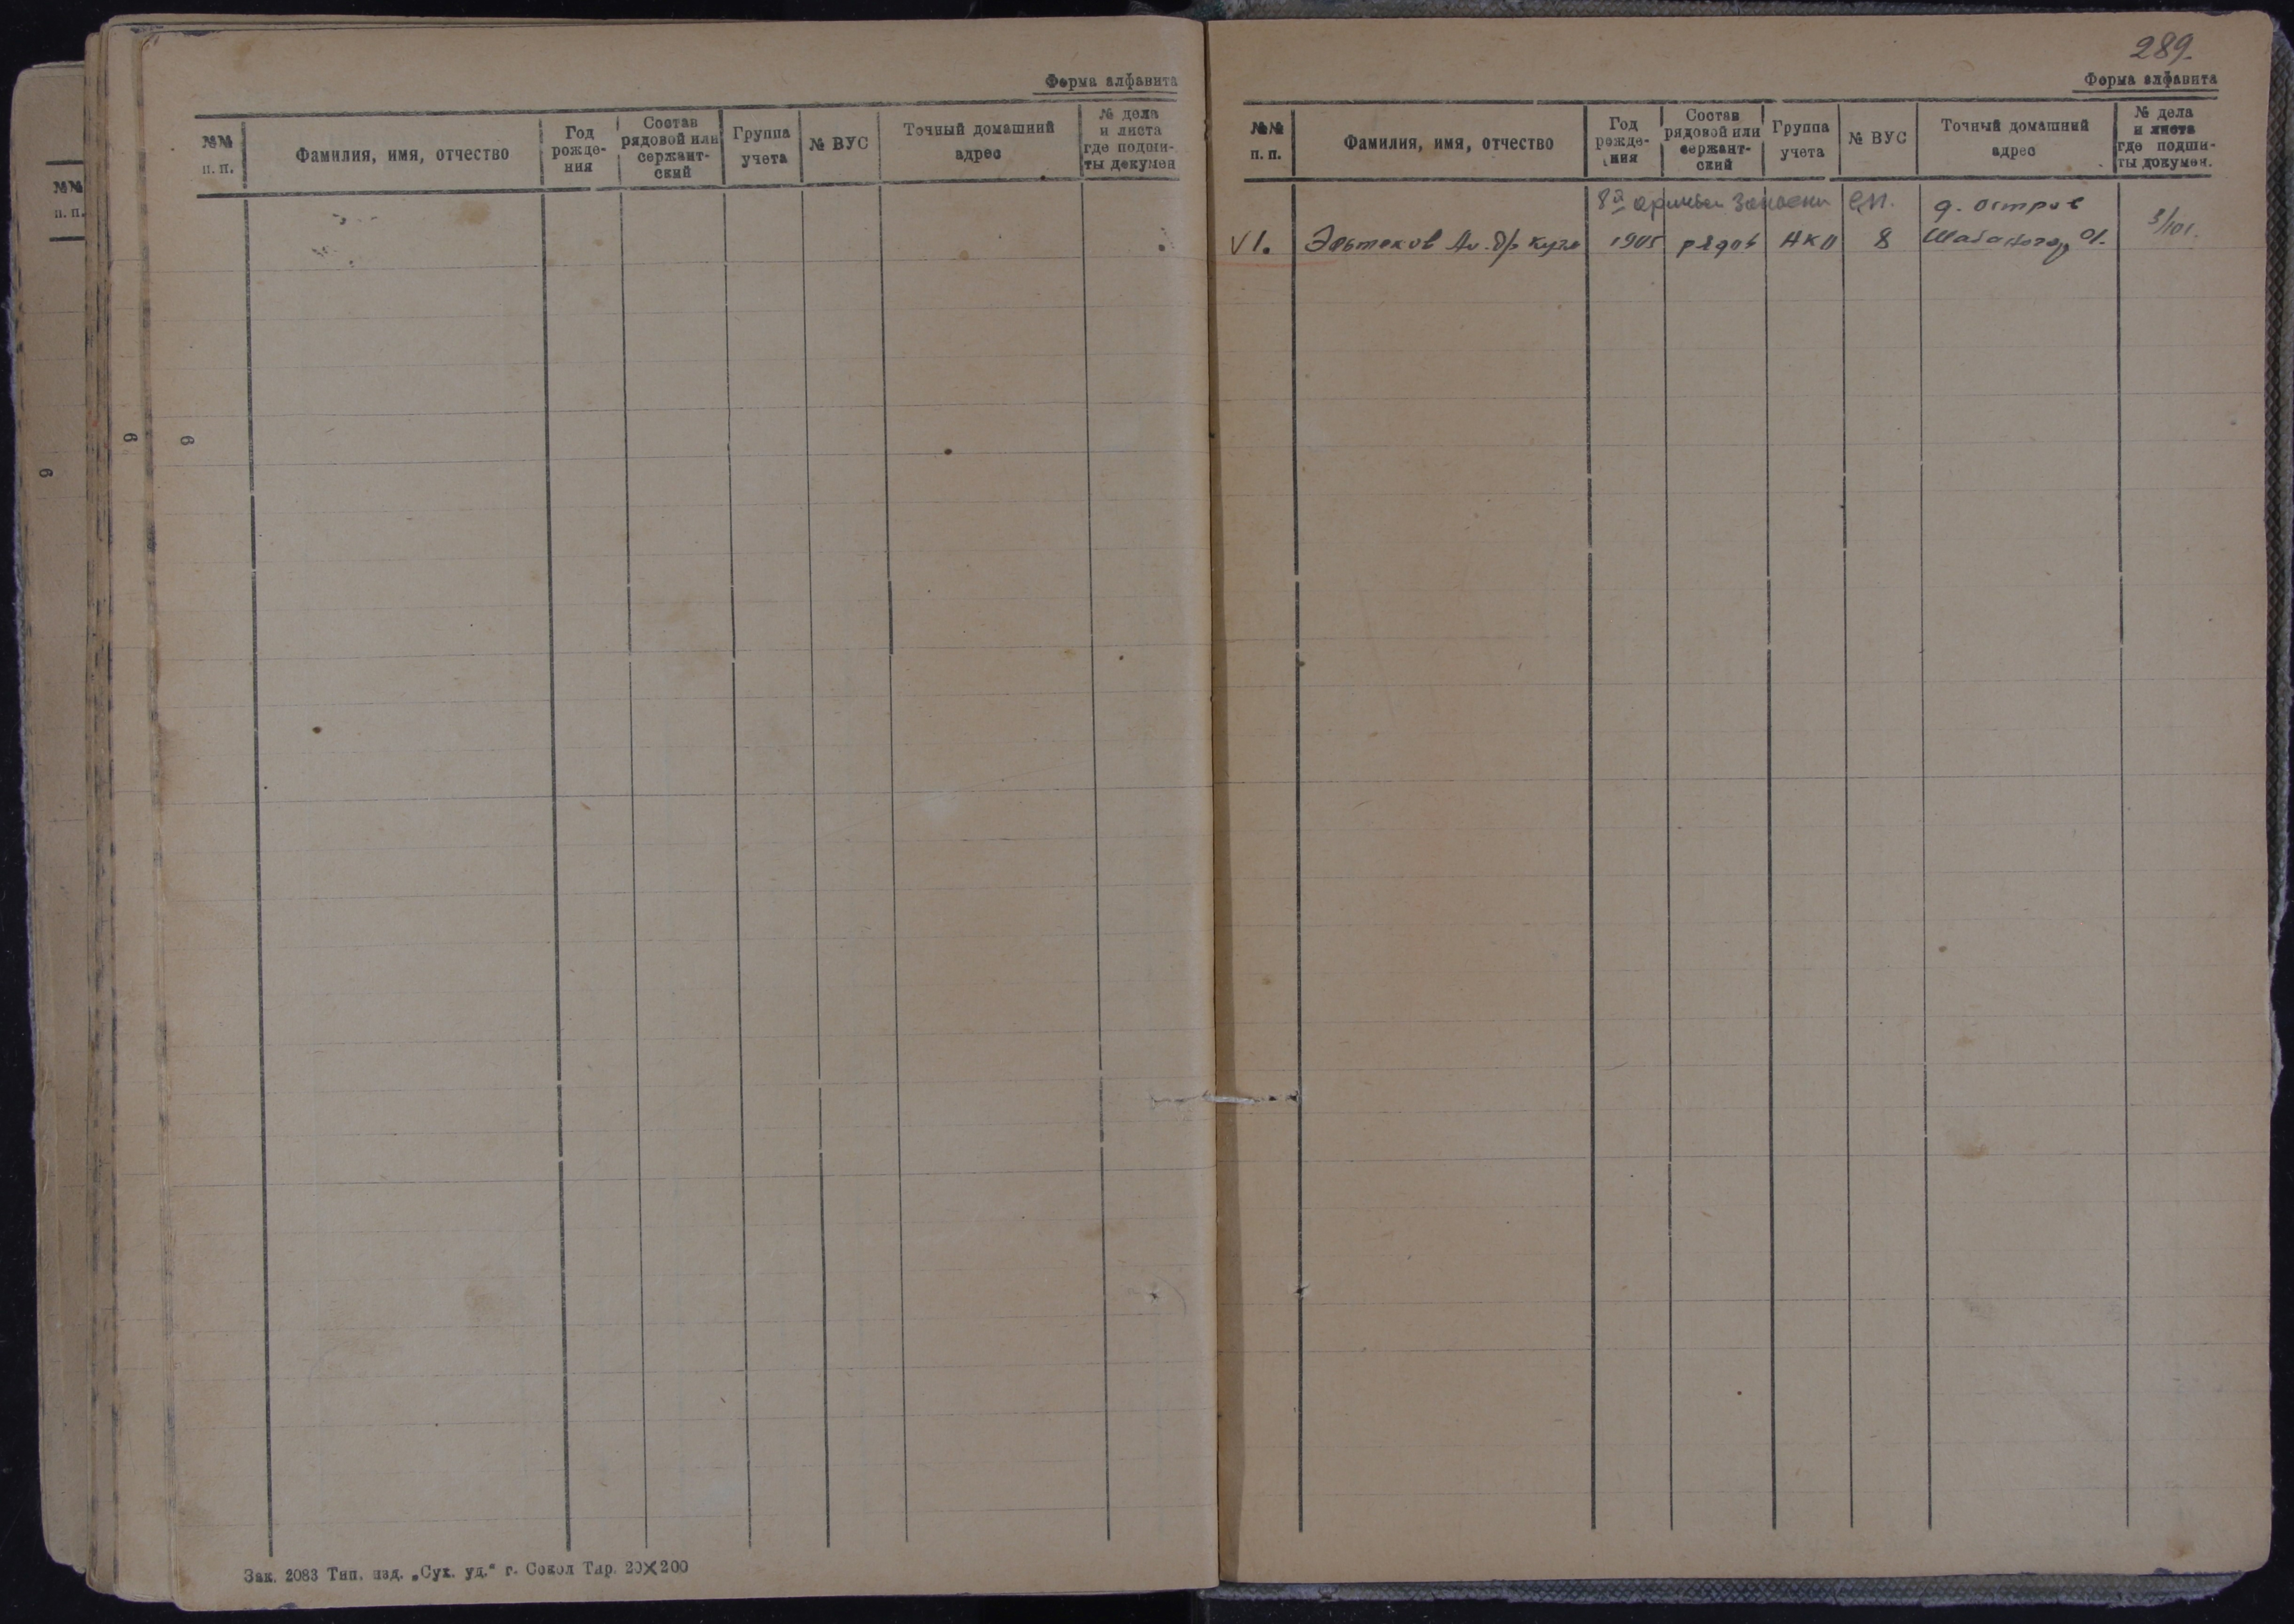 Форма алфавита
№№ п. п.
Фамилия, имя, отчество
Год рожде- ния
Состав рядовой или сержант- ский
Группа учета
№ ВУС
Точный домашний адрес
№ дела и листа где подши- ты докумен
№№ п. п.
6
6
6
Зак. 2083 Тип. изд. „Сух. уд.“ г. Сокол Тир. 20×200
289.
Форма алфавита
№№ п. п.
Фамилия, имя, отчество
Год рожде- ния
Состав рядовой или сержант- ский
Группа учета
№ ВУС
Точный домашний адрес
№ дела и листа где подши- ты докумен.
8я запасн сп. д. остров
V 1. 1905 рядов НКО 8 3/101.